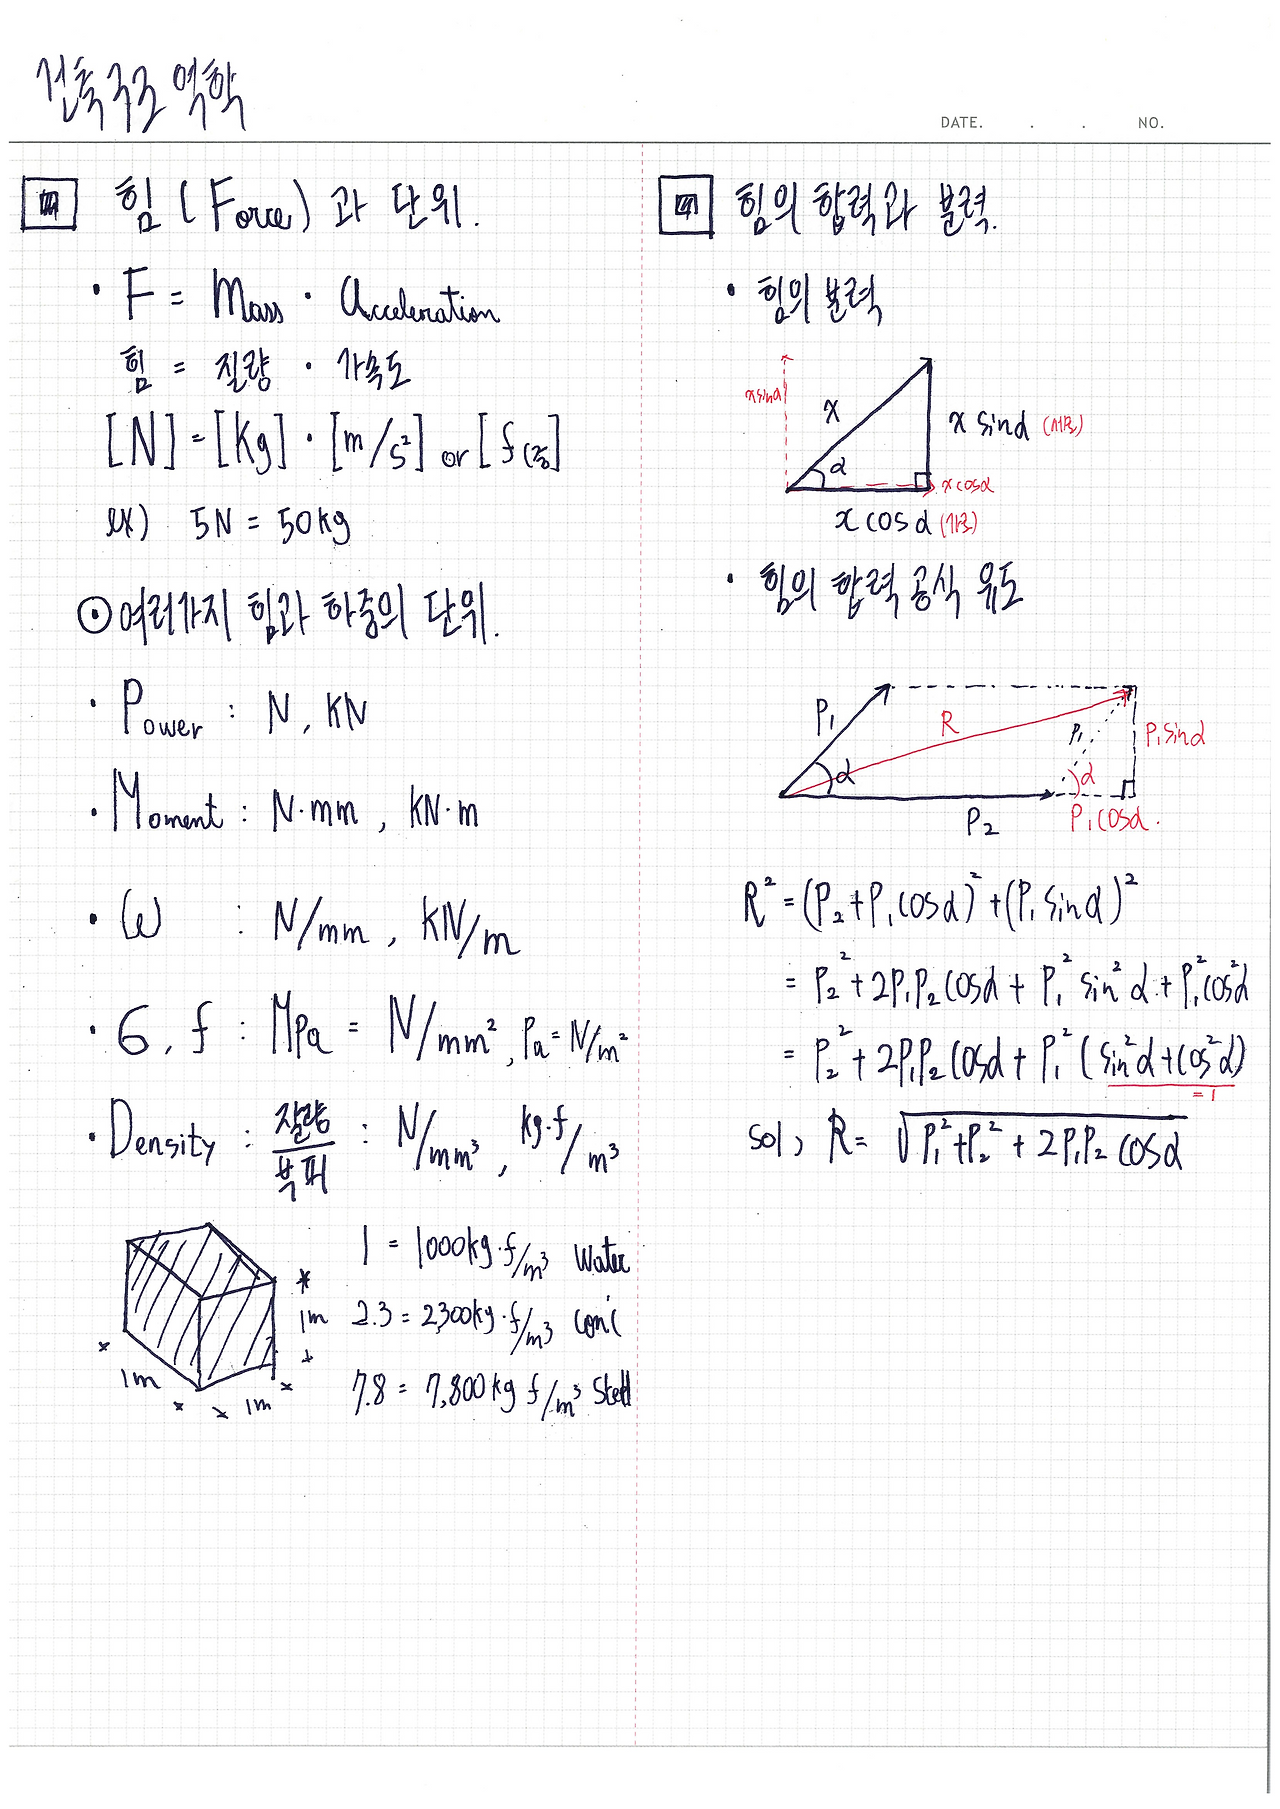 건축구조 역학
DATE. . . NO.
힘 (Force) 과 단위.
• F = Mass · Acceleration
힘 = 질량 · 가속도
[N] = [kg] · [m/s²] or [f(중)]
ex) 5N = 50kg
⊙ 여러가지 힘과 하중의 단위.
• Power : N, KN
• Moment : N·mm, KN·m
• ω : N/mm, KN/m
• σ, f : MPa = N/mm², Pa = N/m²
• Density : 질량/부피 : N/mm³, kg·f/m³
1 = 1000kg·f/m³ Water
2.3 = 2,300kg·f/m³ con'c
7.8 = 7,800kg f/m³ Steel
1m
1m
1m
힘의 합력과 분력.
• 힘의 분력
x sinα
x
α
x sinα (세로)
x cosα
x cosα (가로)
• 힘의 합력 공식 유도
P₁
R
P₁
P₁ sinα
α
α
P₂
P₁ cosα.
R² = (P₂+P₁cosα)² + (P₁ sinα)²
= P₂² + 2P₁P₂ cosα + P₁² sin²α + P₁²cos²α
= P₂² + 2P₁P₂ cosα + P₁² (sin²α + cos²α)
= 1
sol) R = √P₁²+P₂² + 2P₁P₂ cosα